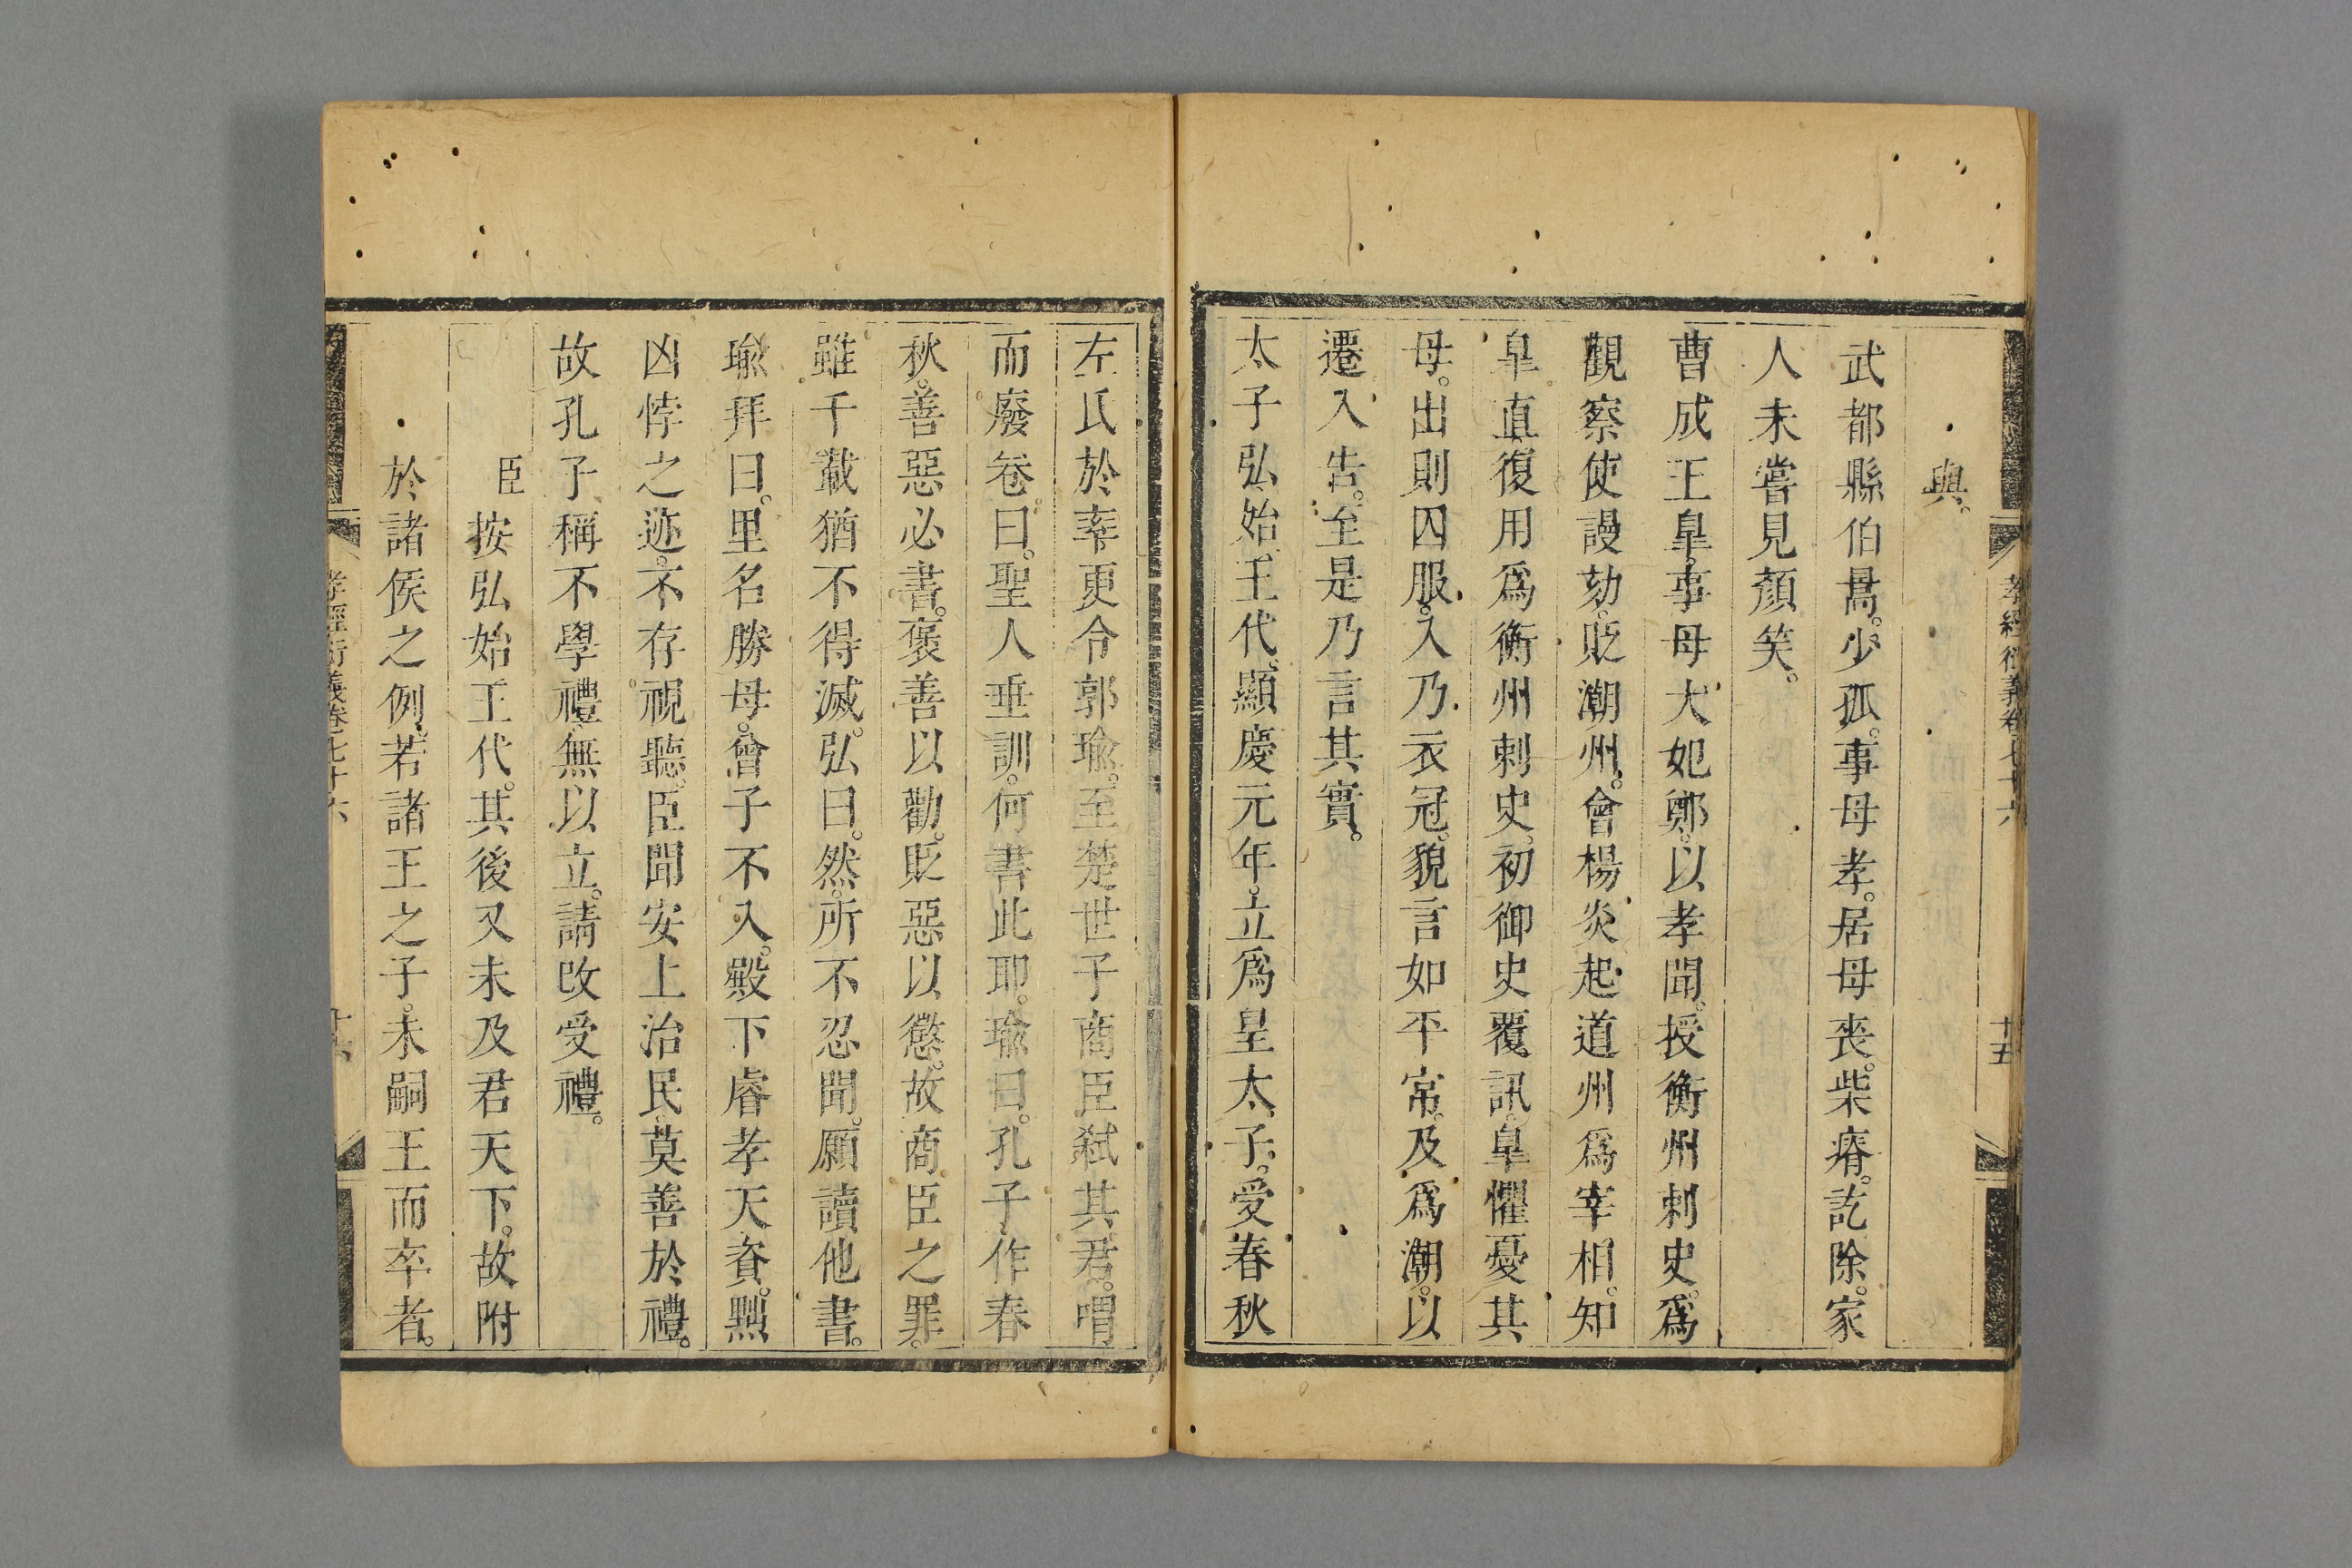 孝經衍義卷七十六
十五
與。
武都縣伯暠。少孤。事母孝。居母喪。柴瘠。訖除。家
人未嘗見顏笑。
曹成王皐。事母太妃鄭。以孝聞。授衡州刺史。爲
觀察使謾劾。貶潮州。會楊炎起道州爲宰相。知
皐直。復用爲衡州刺史。初御史覆訊。皐懼憂其
母。出則囚服。入乃衣冠。貌言如平常。及爲潮。以
遷入告。至是乃言其實。
太子弘始王代。顯慶元年。立爲皇太子。受春秋
左氏於率更令郭瑜。至楚世子商臣弑其君。喟
而廢卷曰。聖人垂訓。何書此耶。瑜曰。孔子作春
秋。善惡必書。褒善以勸。貶惡以懲。故商臣之罪。
雖千載猶不得滅。弘曰。然。所不忍聞。願讀他書。
瑜拜曰。里名勝母。曾子不入。殿下睿孝天資。黜
凶悖之迹。不存視聽。臣聞安上治民。莫善於禮。
故孔子稱不學禮無以立。請改受禮。
臣按弘始王代。其後又未及君天下。故附
於諸侯之例。若諸王之子。未嗣王而卒者。
孝經衍義卷七十六
十六